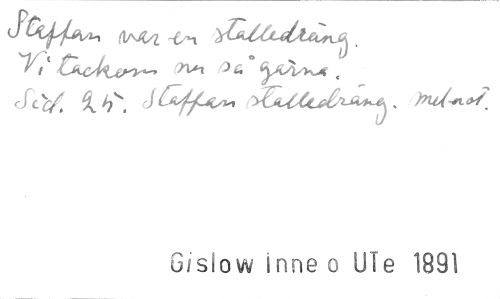 Staffan var en stalledräng.
Vi tackom nu så gärna.
Sid. 25. Staffan stalledräng. mel-not.
Gislow Inne o UTe 1891